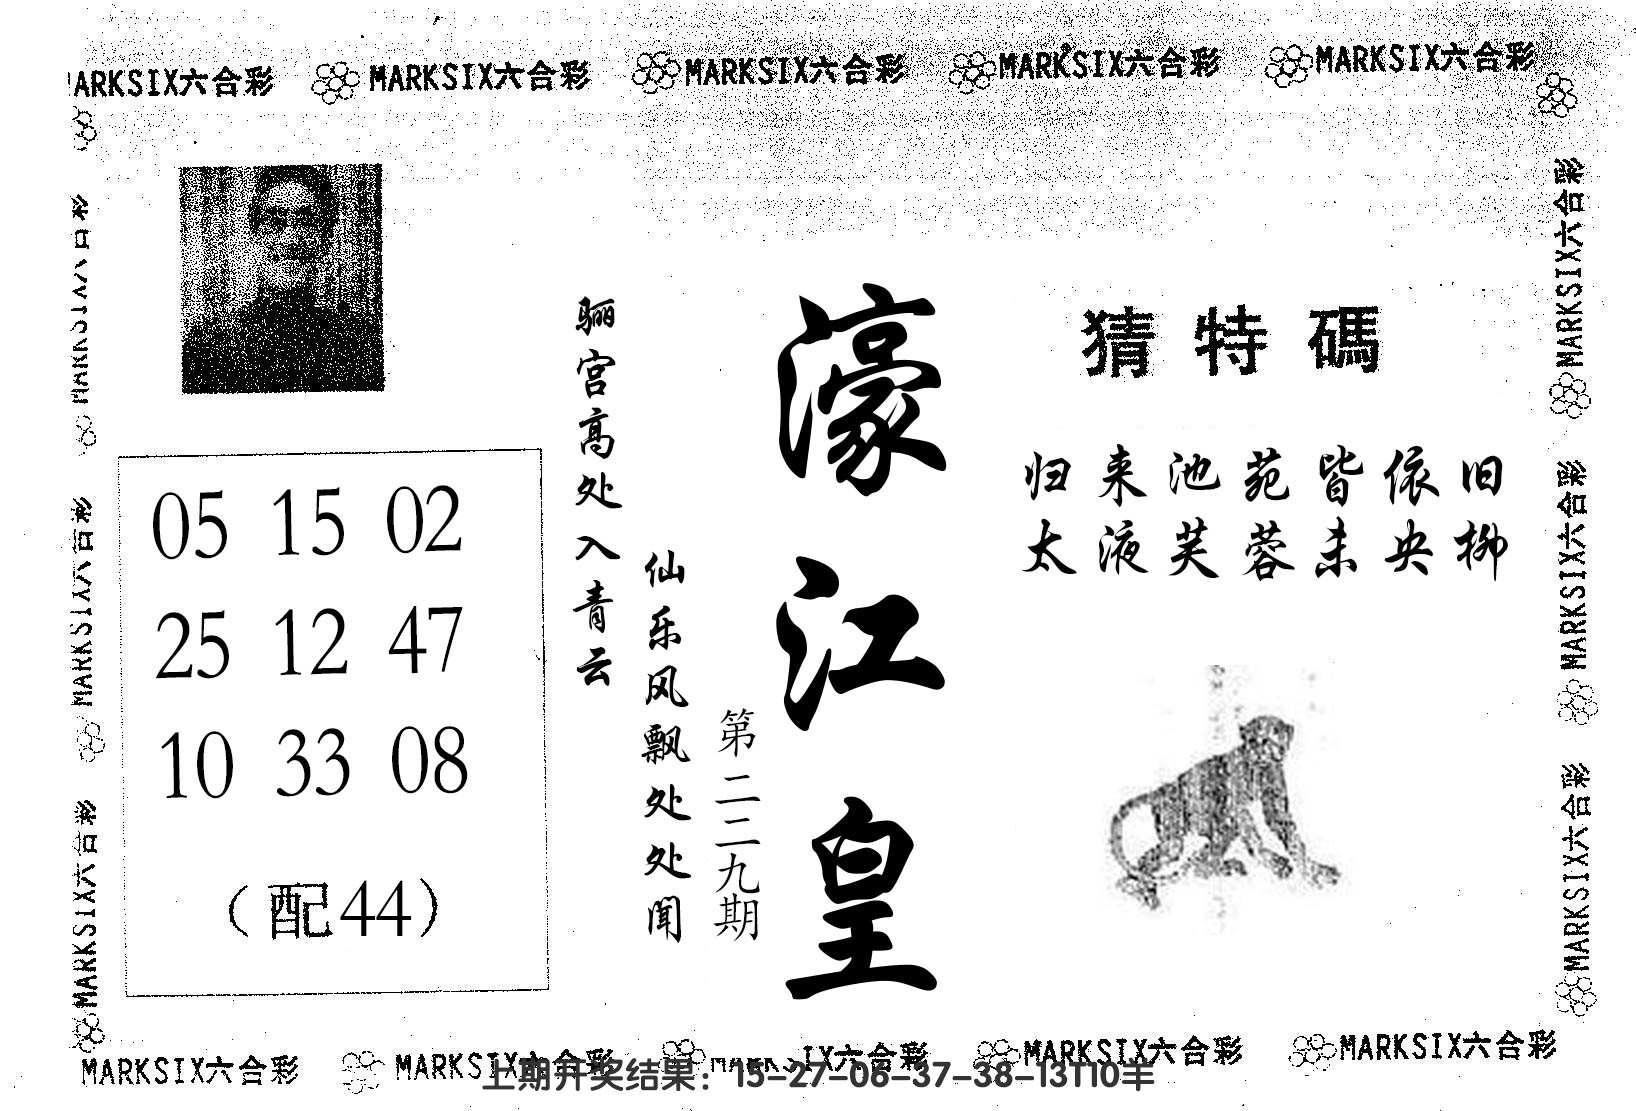 MARKSIX六合彩 MARKSIX六合彩 MARKSIX六合彩 MARKSIX六合彩 MARKSIX六合彩
MARKSIX六合彩
MARKSIX六合彩
MARKSIX六合彩
MARKSIX六合彩
MARKSIX六合彩
MARKSIX六合彩
05 15 02
25 12 47
10 33 08
（配44）
骊宫高处入青云
仙乐风飘处处闻
第二二九期
濠江皇
猜特碼
归来池苑皆依旧
太液芙蓉未央柳
MARKSIX六合彩 MARKSIX六合彩 MARKSIX六合彩 MARKSIX六合彩 MARKSIX六合彩
上期开奖结果：15-27-06-37-38-13T10羊